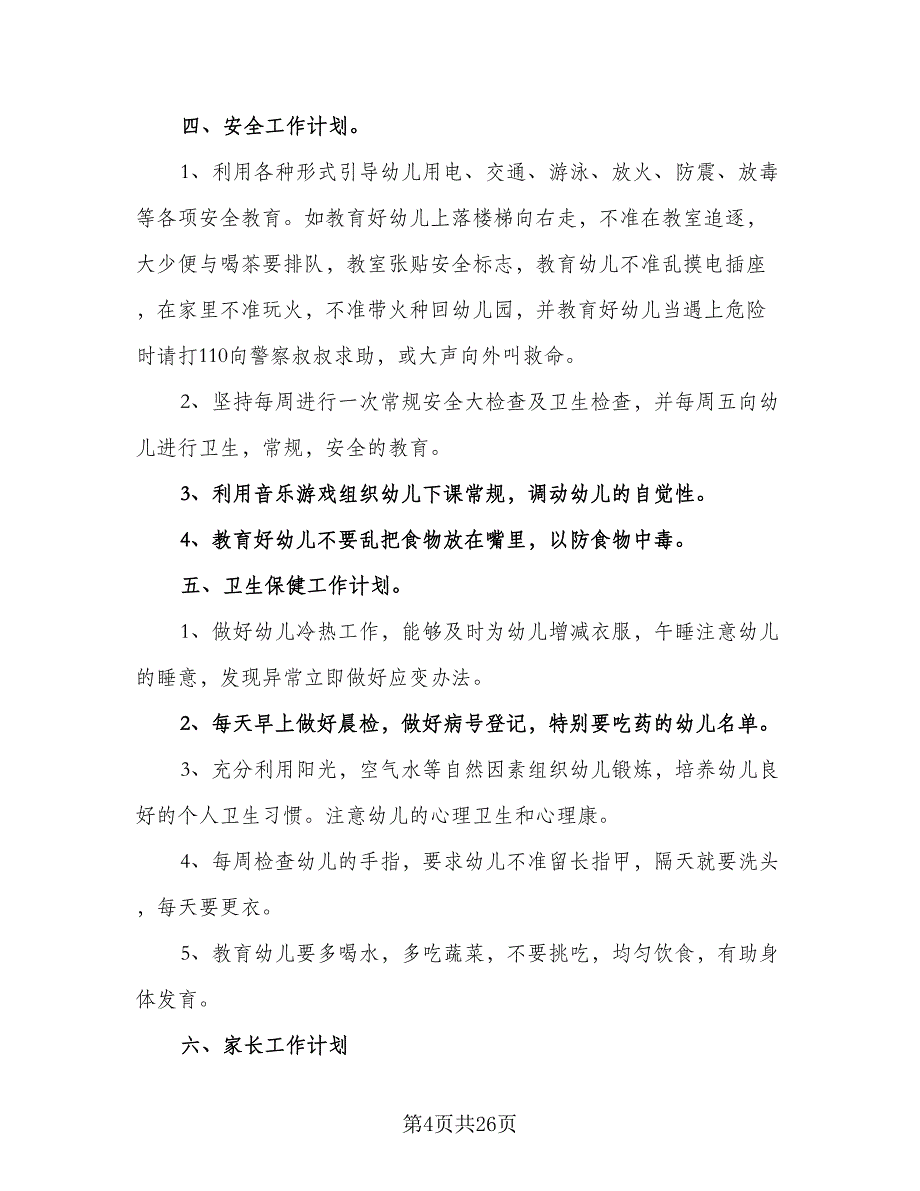 四、安全工作计划。
1、利用各种形式引导幼儿用电、交通、游泳、放火、防震、放毒
等各项安全教育。如教育好幼儿上落楼梯向右走，不准在教室追逐，
大少便与喝茶要排队，教室张贴安全标志，教育幼儿不准乱摸电插座
，在家里不准玩火，不准带火种回幼儿园，并教育好幼儿当遇上危险
时请打110向警察叔叔求助，或大声向外叫救命。
2、坚持每周进行一次常规安全大检查及卫生检查，并每周五向幼
儿进行卫生，常规，安全的教育。
3、利用音乐游戏组织幼儿下课常规，调动幼儿的自觉性。
4、教育好幼儿不要乱把食物放在嘴里，以防食物中毒。
五、卫生保健工作计划。
1、做好幼儿冷热工作，能够及时为幼儿增减衣服，午睡注意幼儿
的睡意，发现异常立即做好应变办法。
2、每天早上做好晨检，做好病号登记，特别要吃药的幼儿名单。
3、充分利用阳光，空气水等自然因素组织幼儿锻炼，培养幼儿良
好的个人卫生习惯。注意幼儿的心理卫生和心理康。
4、每周检查幼儿的手指，要求幼儿不准留长指甲，隔天就要洗头
，每天要更衣。
5、教育幼儿要多喝水，多吃蔬菜，不要挑吃，均匀饮食，有助身
体发育。
六、家长工作计划
第4页共26页